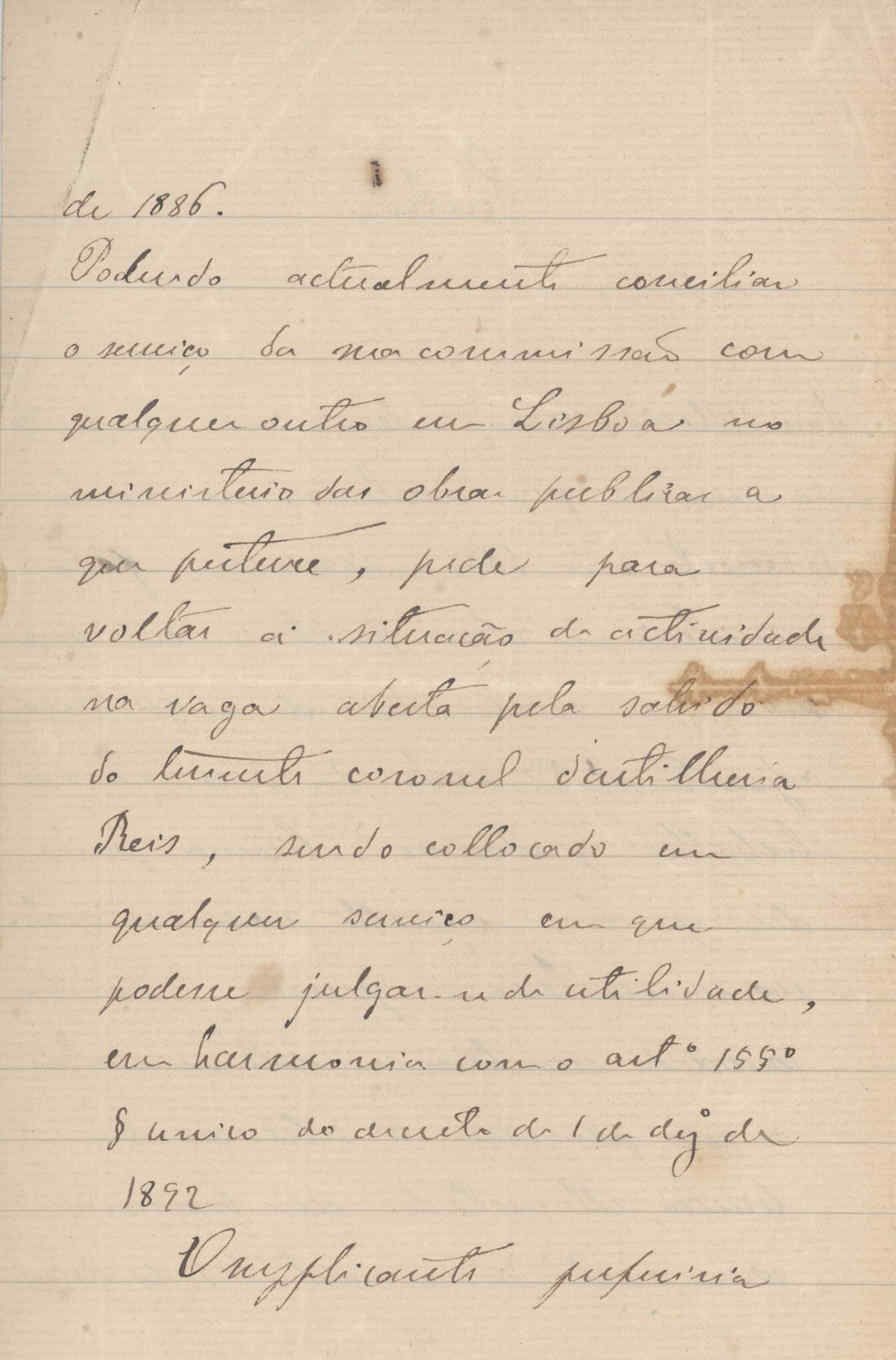 de 1886.
Podendo actualmente conciliar
o serviço da sua commissão com
qualquer outro em Lisboa no
ministerio das obras publicas a
que pertence, pede para
voltar á situação de actividade
na vaga aberta pela sahida
do tenente coronel d'artilheria
Reis, sendo collocado em
qualquer serviço em que
podesse julgar-se de utilidade,
em harmonia com o artº 155º
§ unico do decreto de 1 de dezº de
1892
O supplicante preferiria